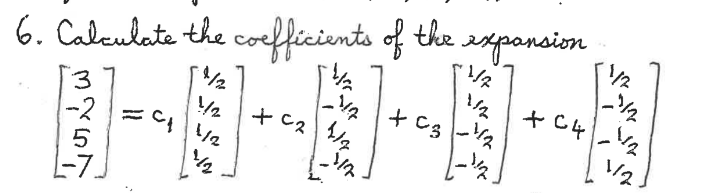 6. Calculate the coefficients of the expansion
[3 -2 5 -7] = c₁ [1/2 1/2 1/2 1/2] + c₂ [1/2 -1/2 1/2 -1/2] + c₃ [1/2 1/2 -1/2 -1/2] + c₄ [1/2 -1/2 -1/2 1/2]